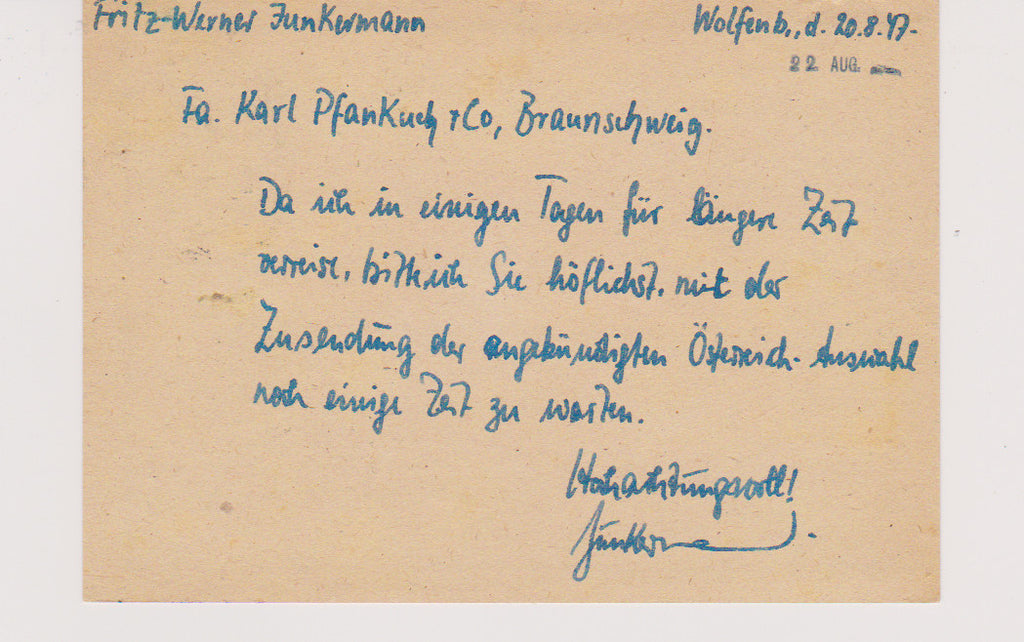 Fritz-Werner Junkermann
Wolfenb., d. 20.8.47.-
22 AUG.
Fa. Karl Pfankuch + Co, Braunschweig.
Da ich in einigen Tagen für längere Zeit
verreise, bitte ich Sie höflichst, mit der
Zusendung der angekündigten Österreich-Auswahl
noch einige Zeit zu warten.
Hochachtungsvoll!
Junkermann